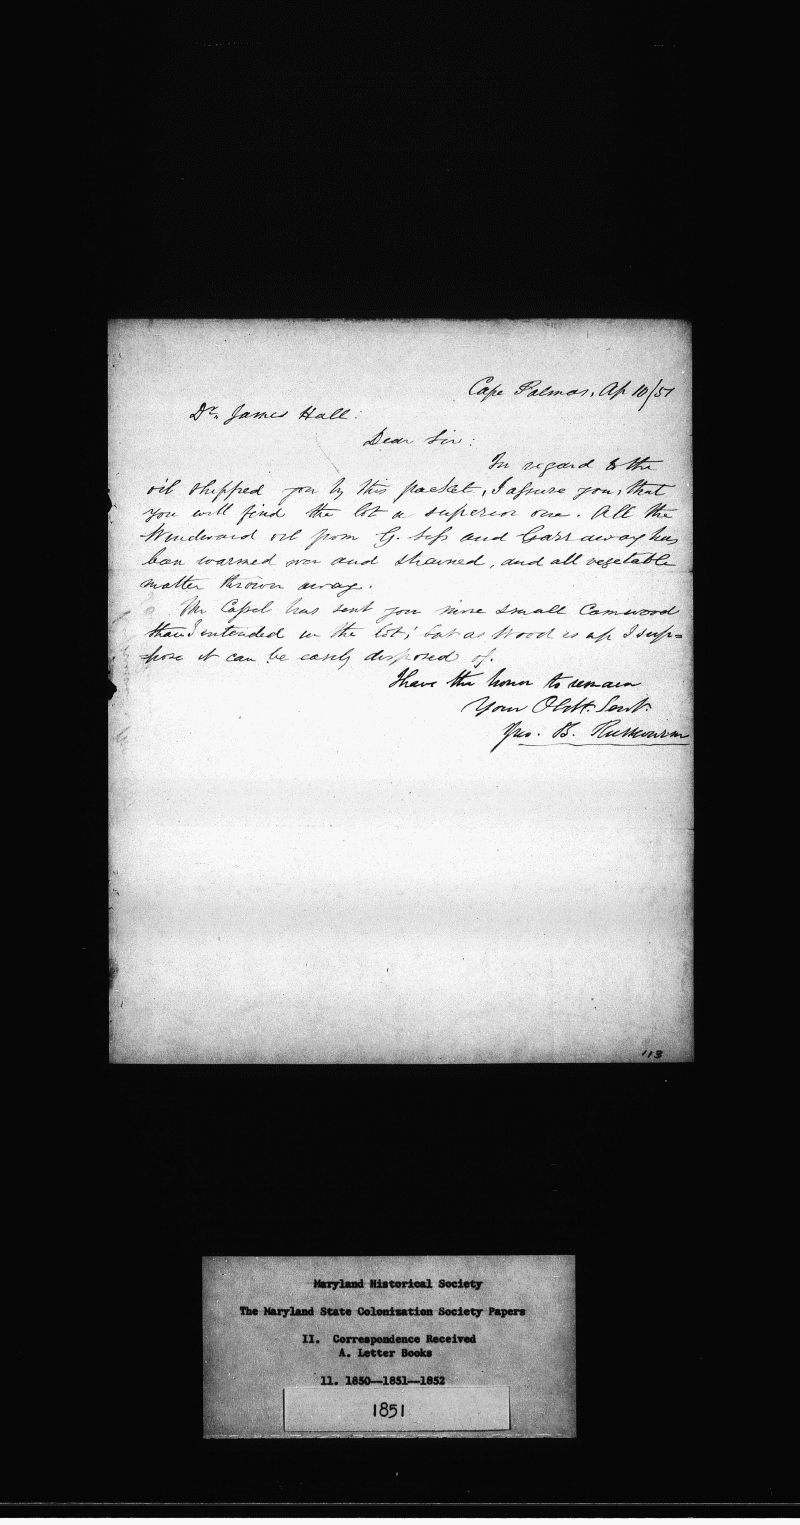 Cape Palmas, Ap 10/51
Dr. James Hall:
Dear Sir:
In regard to the
oil shipped you by this packet, I assure you, that
you will find the lot a superior one. All the
Windward oil from G. Sess and Garraway has
been warmed over and strained, and all vegetable
matter thrown away.
Mr Cassel has sent you more small Camwood
than I intended in the lot; but as Wood is up I sup=
pose it can be easily disposed of.
I have the honor to remain
Your Obdt. Servt.
Jno. B. Russwurm
113
Maryland Historical Society
The Maryland State Colonization Society Papers
II. Correspondence Received
A. Letter Books
11. 1850--1851--1852
1851